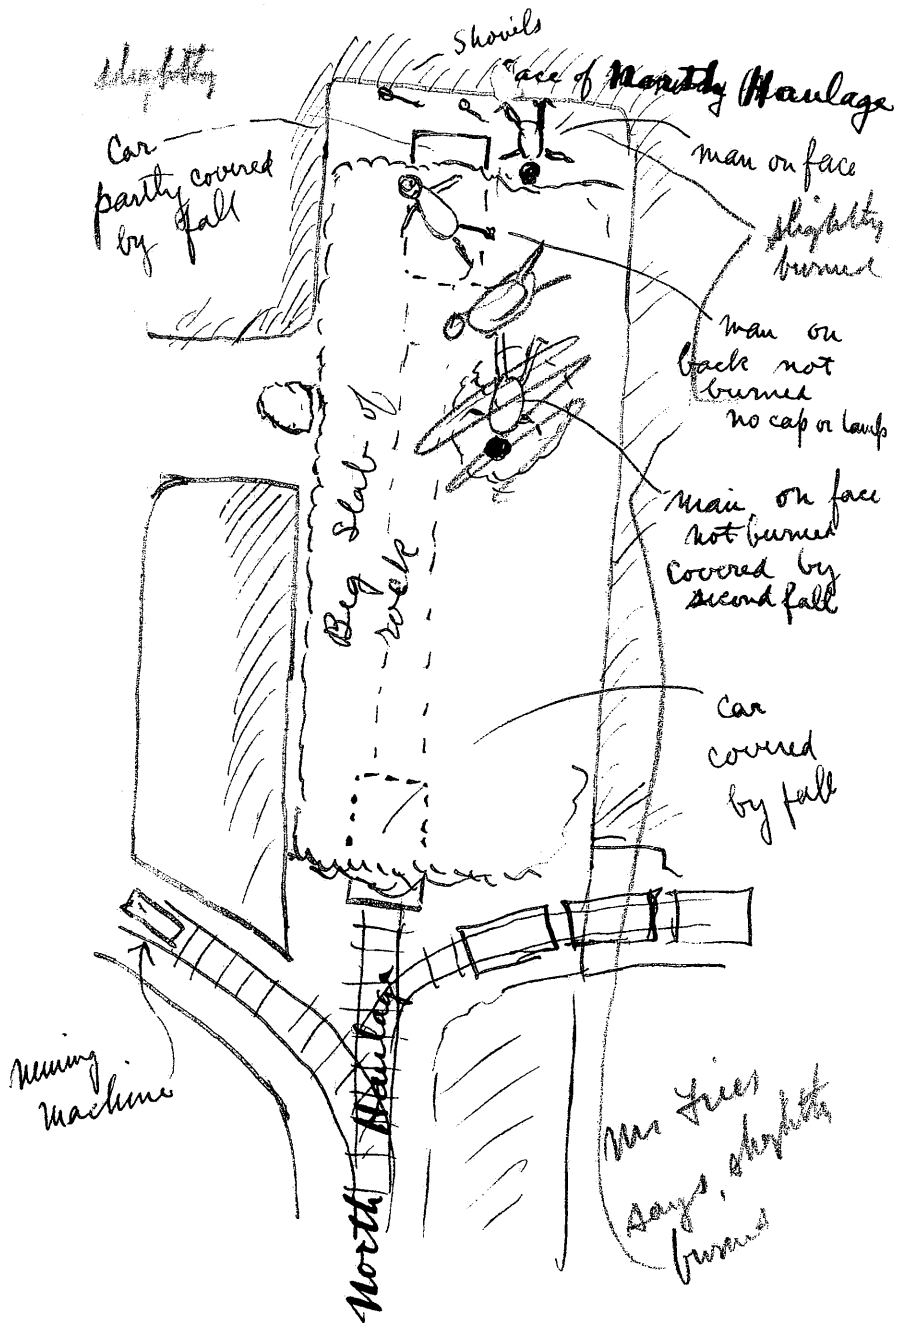 Shovels
slightly
Face of North Haulage
Car
partly covered
by fall
man on face
slightly
burned
man on
back not
burned
no cap or lamp
Big Slab of
rock
man on face
not burned
covered by
second fall
Car
covered
by fall
mining
machine
North Haulage
Mr
says slightly
burned